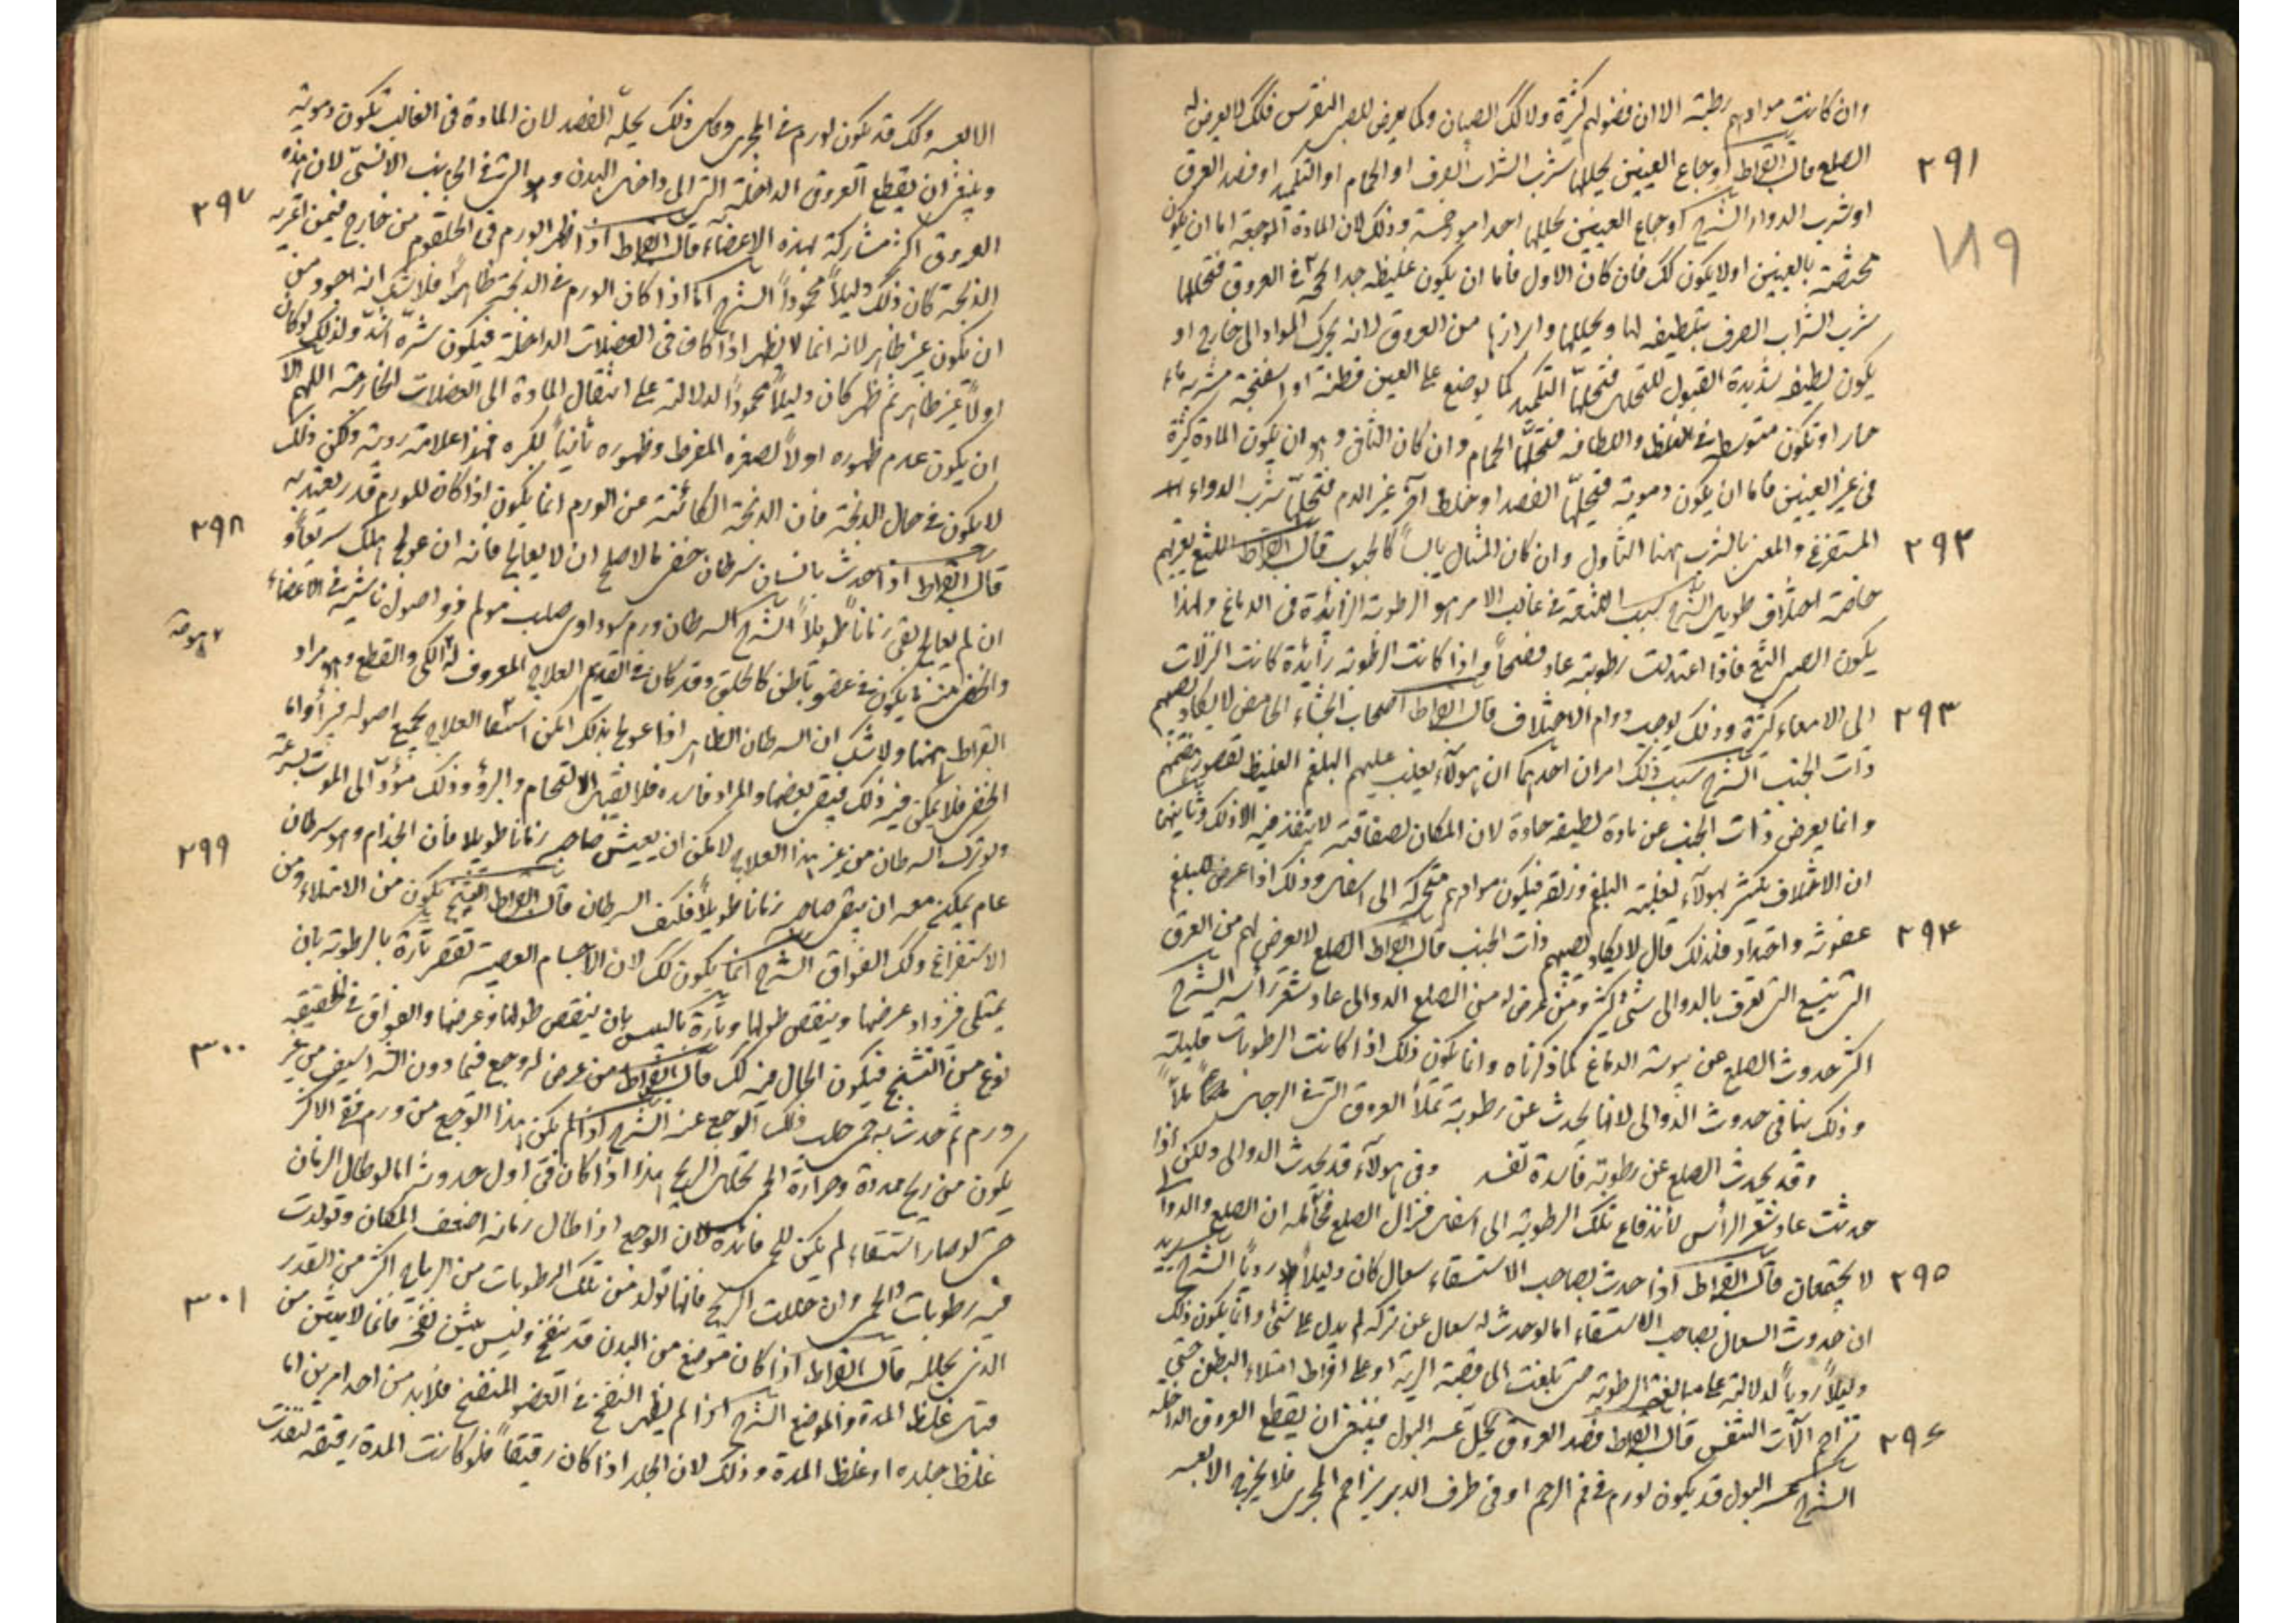 وان كانت موادهم رطبة الا ان فضولهم كثيرة ولا كك الصبيان وكما يعرض للصبي النقرس فكك لا يعرض له
٢٩١
الصلع قال ابقراط اوجاع العينين يحللها شرب الشراب الصرف او الحمام او التكميد او فصد العرق
٧١٩
او شرب الدواء الشرح اوجاع العينين يحللها احد امور خمسة وذلك لان المادة الموجعة اما ان يكون
مختصة بالعينين او لا يكون كك فان كان الاول فاما ان يكون غليظة جدا في العروق فتحللها
شرب الشراب الصرف بتلطيفه لها وتحليلها وابرازها من العروق لانه يحرك المواد الى خارج او
يكون لطيفة شديدة القبول للتحلل فتحللها التكميد كما يوضع على العين قطنة او اسفنجة مشربة ماء
حار او تكون متوسطة في الغلظ واللطافة فتحللها الحمام وان كان الثاني وهو ان يكون المادة كثيرة
في غير العينين فاما ان يكون دموية فتحللها الفصد او خلط آخر غير الدم فتحللها شرب الدواء
٢٩٢
المستفرغ والمعنى بالشرب ههنا التناول وان كان المتناول يابسا كالحبوب قال ابقراط اللثغ يعتريهم
خاصة اختلاف طويل الشرح سبب اللثغة في غالب الامر هو الرطوبة الزائدة في الدماغ ولهذا
يكون الصبي الثغ فاذا اعتدلت رطوبته عاد فصيحا واذا كانت الرطوبة زائدة كانت النزلات
٢٩٣
الى الامعاء كثيرة وذلك يوجب دوام الاختلاف قال ابقراط اصحاب الجشاء الحامض لا يكاد يصيبهم
ذات الجنب الشرح سبب ذلك امران احدهما ان هولاء يغلب عليهم البلغم الغليظ لقصور هضمهم
وانما يعرض ذات الجنب عن مادة لطيفة حادة لان المكان لصفاقته لا ينفذ فيه الا ذلك وثانيهما
ان الاختلاف يكثر بهولاء لغلبة البلغم وزلقه فيكون موادهم متحركة الى اسفل وذلك اذا عرض للبلغم
٢٩٤
عفونة واحتداد فلذلك قال لا يكاد يصيبهم ذات الجنب قال ابقراط الصلع لا يعرض لهم من العرق
التي تتسع التي تعرف بالدوالي شئ كثير ومتى عرض له من الصلع الدوالى عاد شعر رأسه الشرح
اكثر حدوث الصلع عن يبوسة الدماغ كما ذكرناه وانما يكون ذلك اذا كانت الرطوبات قليلة
وذلك ينافي حدوث الدوالي لانها تحدث عن رطوبة تملأ العروق التي في الرجل
وقد يحدث الصلع عن رطوبة فاسدة تفسد وفي هولاء قد يحدث الدوالى ولكن اذا
حدثت عاد شعر الرأس لاندفاع تلك الرطوبة الى اسفل فزال الصلع ان الصلع والدوالى
٢٩٥
لا يجتمعان قال ابقراط اذا حدث بصاحب الاستسقاء سعال كان دليلا رديا الشرح
ان حدوث السعال بصاحب الاستسقاء اما لو حدث له سعال عن نزلة لم يدل على شئ وانما يكون ذلك
دليلا رديا لدلالته على مبالغة الرطوبة حتى بلغت الى قصبة الرية او على افراط امتلاء البطن حتى
٢٩٦
تزاحم آلات التنفس قال ابقراط فصد العروق يحل عسر البول فينبغي ان يقطع العروق الداخلة
الشرح عسر البول قد يكون لورم في فم الرحم او في طرف الدبر يزاحم المجرى فلا يخرج الا بعسر
الا بعسر وكك قد يكون لورم في المجرى وكل ذلك يحله الفصد لان المادة في الغالب تكون دموية
وينبغي ان يقطع العروق الداخلة التي الى داخل البدن وهو التي في الجانب الانسي لان هذه
٢٩٧
العروق اكثر مشاركة لهذه الاعضاء قال ابقراط اذا ظهر الورم في الحلقوم من خارج فيمن اعتريه
الذبحة كان ذلك دليلا محمودا الشرح اما اذا كان الورم في الذبحة ظاهرا فلا شك انه اجود من
ان يكون غير ظاهر لانه انما لا يظهر اذا كان في العضلات الداخلة فيكون شره اشد ولذلك لو كان
اولا غير ظاهر ثم ظهر كان دليلا محمودا لدلالته على انتقال المادة الى العضلات الخارجة اللهم الا
ان يكون عدم ظهوره اولا لصغره المفرط وظهوره ثانيا لكبره فهذا علامة ردية ولكن ذلك
لا يكون في حال الذبحة فان الذبحة الكائنة من الورم انما يكون اذا كان للورم قدر يعتد به
٢٩٨
قال ابقراط اذا حدث بانسان سرطان خفي فالاصلح ان لا يعالج فانه ان عولج اهلك سريعا و
ان لم يعالج بقى زمانا طويلا الشرح السرطان ورم سوداوى صلب مولم ذو اصول ناشبة في الاعضاء
والخفي منه ما يكون في عضو باطن كالحلق وقد كان في القديم العلاج المعروف له الكي والقطع وهو مراد
ابقراط ههنا ولا شك ان السرطان الظاهر اذا عولج بذلك امكن استيفاء العلاج بجميع اصوله فيبرأ واما
الخفي فلا يمكن فيه ذلك فيبقى بعضها والمواد فاسدة فلا يقبل الالتحام والبرؤ وذلك مؤد الى الموت بسرعة
٢٩٩
ولو ترك السرطان من غير هذا العلاج لامكن ان يعيش صاحبه زمانا طويلا فان الجذام وهو سرطان
عام يمكن معه ان يبقى صاحبه زمانا طويلا فكيف السرطان قال ابقراط التشنج يكون من الامتلاء ومن
الاستفراغ وكك الفواق الشرح انما يكون كك لان الاجسام العصبية تقصر تارة بالرطوبة بان
يمتلى فيزداد عرضها وينقص طولها وتارة باليبس بان ينقص طولها وعرضها والفواق في الحقيقة
٣٠٠
نوع من التشنج فيكون الحال فيه كك قال ابقراط من عرض له وجع فيما دون الشراسيف من غير
ورم ثم حدث به حمى حلت ذلك الوجع عنه الشرح اذا لم يكن هذا الوجع من ورم ففي الاكثر
يكون من ريح ممددة وحرارة الحمى تحلل الريح هذا اذا كان في اول حدوثه اما لو طال الزمان
حتى لو صار استسقاء لم يكن للحمى فائدة لان الوجع اذا طال زمانه اضعف المكان وتولدت
فيه رطوبات والحمى وان حللت الريح فانها تولد من تلك الرطوبات من الرياح اكثر من القدر
٣٠١
الذي يحلله قال ابقراط اذا كان موضع من البدن قد تقيح وليس يتبين تقيحه فانما لا يتبين من
قبل غلظ المدة والموضع الشرح اذا لم يظهر التقيح في العضو المتقيح فلا بد من احد امرين اما
غلظ جلده او غلظ المدة وذلك لان الجلد اذا كان رقيقا فلو كانت المدة رقيقة لنفذت